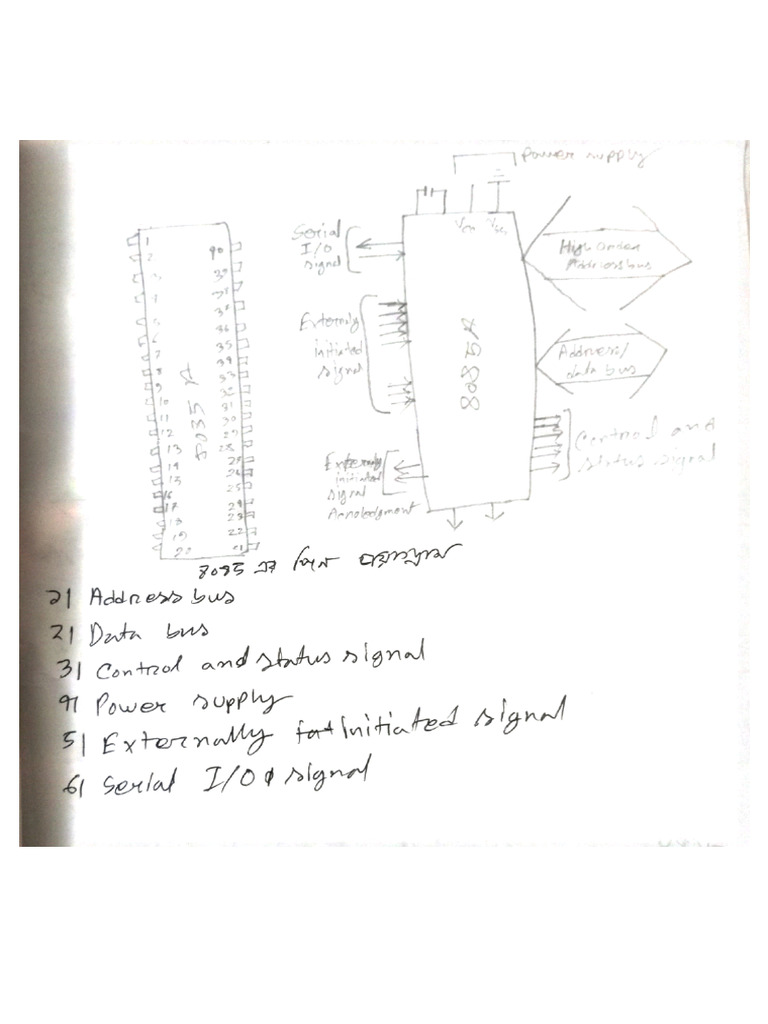 Power supply
Serial
I/O
signal
Vcc Vss
High order
Address bus
Externaly
initiated
signal
Address/
data bus
8085A
8085 A
Control and
status signal
Externaly
initiated
signal
1
2
3
4
5
6
7
8
9
10
11
12
13
14
15
16
17
18
19
20
40
39
38
37
36
35
34
33
32
31
30
29
28
27
26
25
24
23
22
21
8085 এর পিন
১| Address bus
২| Data bus
3| Control and status signal
৪| Power supply
5| Externally initiated signal
6| Serial I/O signal